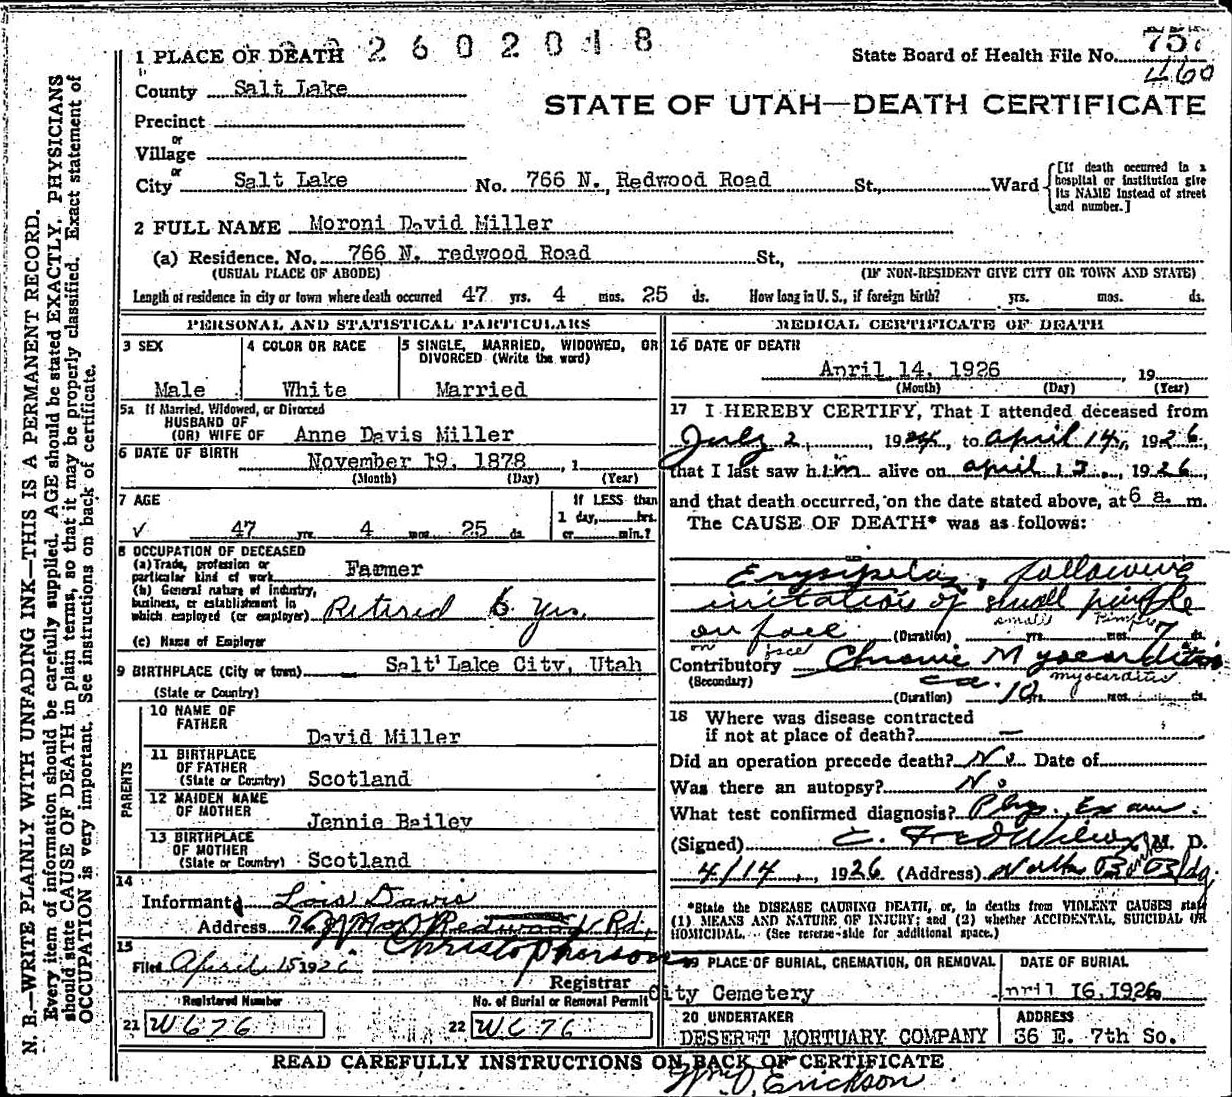 1 PLACE OF DEATH 2 2602018
State Board of Health File No. 757
460
County Salt Lake
STATE OF UTAH—DEATH CERTIFICATE
Precinct
or
Village
or
City Salt Lake No. 766 N. Redwood Road St., Ward
[If death occurred in a hospital or institution give its NAME instead of street and number.]
2 FULL NAME Moroni David Miller
(a) Residence. No. 766 N. redwood Road St.,
(USUAL PLACE OF ABODE) (IF NON-RESIDENT GIVE CITY OR TOWN AND STATE)
Length of residence in city or town where death occurred 47 yrs. 4 mos. 25 ds. How long in U. S., if foreign birth? yrs. mos. ds.
PERSONAL AND STATISTICAL PARTICULARS
3 SEX
Male
4 COLOR OR RACE
White
5 SINGLE, MARRIED, WIDOWED, OR
DIVORCED (Write the word)
Married
5a If Married, Widowed, or Divorced
HUSBAND OF
(OR) WIFE OF Anne Davis Miller
6 DATE OF BIRTH November 19, 1878, 1
(Month) (Day) (Year)
7 AGE
If LESS than
1 day, hrs.
or min.?
47 yrs. 4 mos. 25 ds.
8 OCCUPATION OF DECEASED
(a) Trade, profession or
particular kind of work Farmer
(b) General nature of industry,
business, or establishment in
which employed (or employer) Retired 6 Yrs.
(c) Name of Employer
9 BIRTHPLACE (City or town) Salt Lake City, Utah
(State or Country)
PARENTS
10 NAME OF
FATHER
David Miller
11 BIRTHPLACE
OF FATHER
(State or Country) Scotland
12 MAIDEN NAME
OF MOTHER
Jennie Bailey
13 BIRTHPLACE
OF MOTHER
(State or Country) Scotland
14
Informant Lois Davis
Address 76 Redwood Rd.
15
Filed April 15 1926 Christopherson
Registrar
Registered Number
21 W676
No. of Burial or Removal Permit
22 WC76
MEDICAL CERTIFICATE OF DEATH
16 DATE OF DEATH
April 14, 1926, 19
(Month) (Day) (Year)
17 I HEREBY CERTIFY, That I attended deceased from
July 2, 1924, to April 14, 1926,
that I last saw him alive on April 13, 1926,
and that death occurred, on the date stated above, at 6 a. m.
The CAUSE OF DEATH* was as follows:
Erysipelas, following
irritation of small pimple
small Pimple
on face (Duration) yrs. mos. 7 ds.
on face
Contributory Chronic Myocarditis
(Secondary) myocarditis
ca. 10
(Duration) yrs. mos. ds.
18 Where was disease contracted
if not at place of death? —
Did an operation precede death? No Date of
Was there an autopsy? No
What test confirmed diagnosis? Phys. Exam.
(Signed) C. Fred Wilcox M. D.
4/14, 1926 (Address) North Bldg
*State the DISEASE CAUSING DEATH, or, in deaths from VIOLENT CAUSES state
(1) MEANS AND NATURE OF INJURY; and (2) whether ACCIDENTAL, SUICIDAL OR
HOMICIDAL. (See reverse-side for additional space.)
19 PLACE OF BURIAL, CREMATION, OR REMOVAL
City Cemetery
DATE OF BURIAL
April 16, 1926
20 UNDERTAKER
DESERET MORTUARY COMPANY
ADDRESS
36 E. 7th So.
READ CAREFULLY INSTRUCTIONS ON BACK OF CERTIFICATE
Wm O. Erickson
N. B.—WRITE PLAINLY WITH UNFADING INK—THIS IS A PERMANENT RECORD.
Every item of information should be carefully supplied. AGE should be stated EXACTLY. PHYSICIANS
should state CAUSE OF DEATH in plain terms, so that it may be properly classified. Exact statement of
OCCUPATION is very important. See instructions on back of certificate.